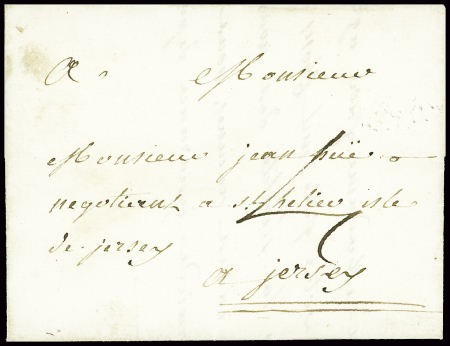 A Monsieur
Monsieur jean
negotiant a st helier isle
de jersey
a jersey